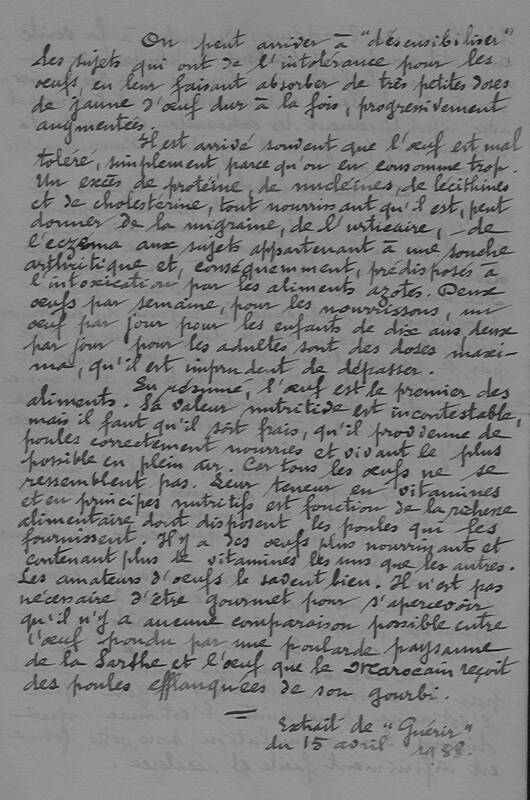 On peut arriver à "désensibiliser"
les sujets qui ont de l'intolérance pour les
œufs, en leur faisant absorber de très petites doses
de jaune d'œuf dur à la fois, progressivement
augmentées.
Il est arrivé souvent que l'œuf est mal
toléré, simplement parce qu'on en consomme trop.
Un excès de protéine, de nucléines, de lécithines
et de cholestérine, tout nourrissant qu'il est, peut
donner de la migraine, de l'urticaire, de
l'eczema aux sujets appartenant à une souche
arthritique et, conséquemment, prédisposés à
l'intoxication par les aliments azotés. Deux
œufs par semaine, pour les nourrissons, un
œuf par jour pour les enfants de dix ans deux
par jour pour les adultes sont des doses maxi-
ma, qu'il est imprudent de dépasser.
En résumé, l'œuf est le premier des
aliments. Sa valeur nutritive est incontestable,
mais il faut qu'il soit frais, qu'il provienne de
poules correctement nourries et vivant le plus
possible en plein air. Car tous les œufs ne se
ressemblent pas. Leur teneur en vitamines
et en principes nutritifs est fonction de la richesse
alimentaire dont disposent les poules qui les
fournissent. Il y a des œufs plus nourrissants et
contenant plus de vitamines les uns que les autres.
Les amateurs d'œufs le savent bien. Il n'est pas
nécessaire d'être gourmet pour s'apercevoir
qu'il n'y a aucune comparaison possible entre
l'œuf pondu par une poularde paysanne
de la Sarthe et l'œuf que le Marocain reçoit
des poules efflanquées de son gourbi.
Extrait de "Guérir"
du 15 avril 1938.